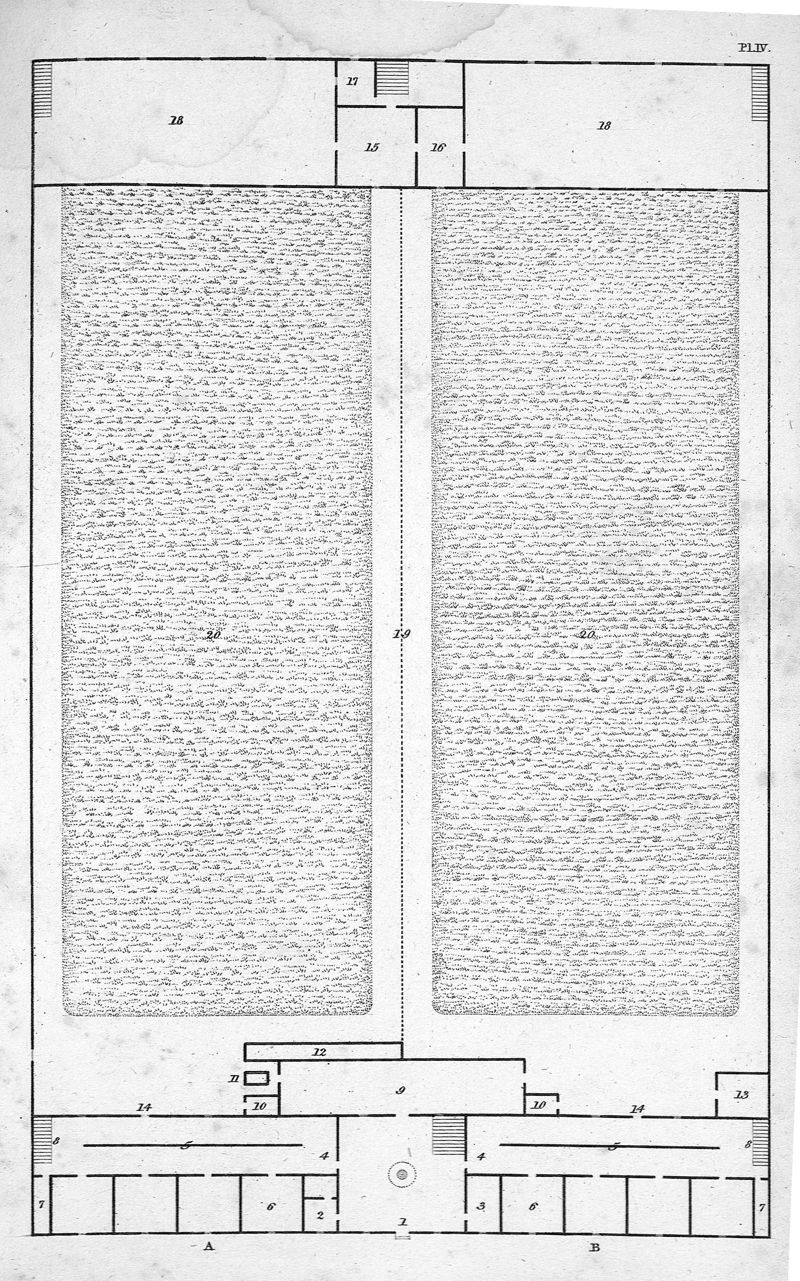 Pl.IV.
17
18
15
16
18
20
19
20
12
11
9
13
10
10
14
14
8
5
4
4
5
8
7
6
2
3
6
7
1
A
B